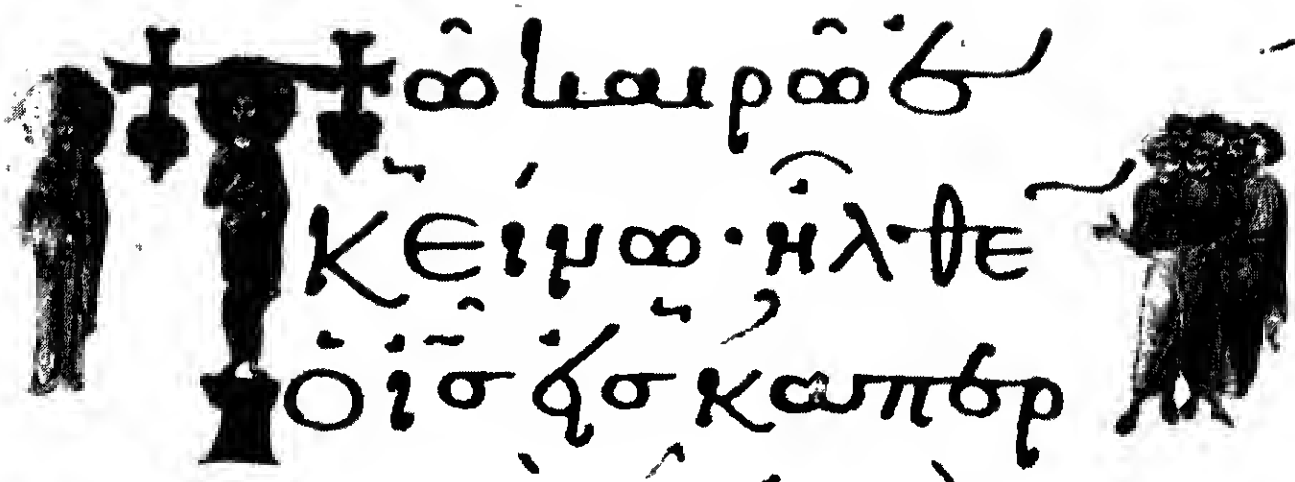 Τῶ καιρῶ ἐ
κείνω· ἦλθε
ὁ ι̅σ̅ εἰσ καπερ